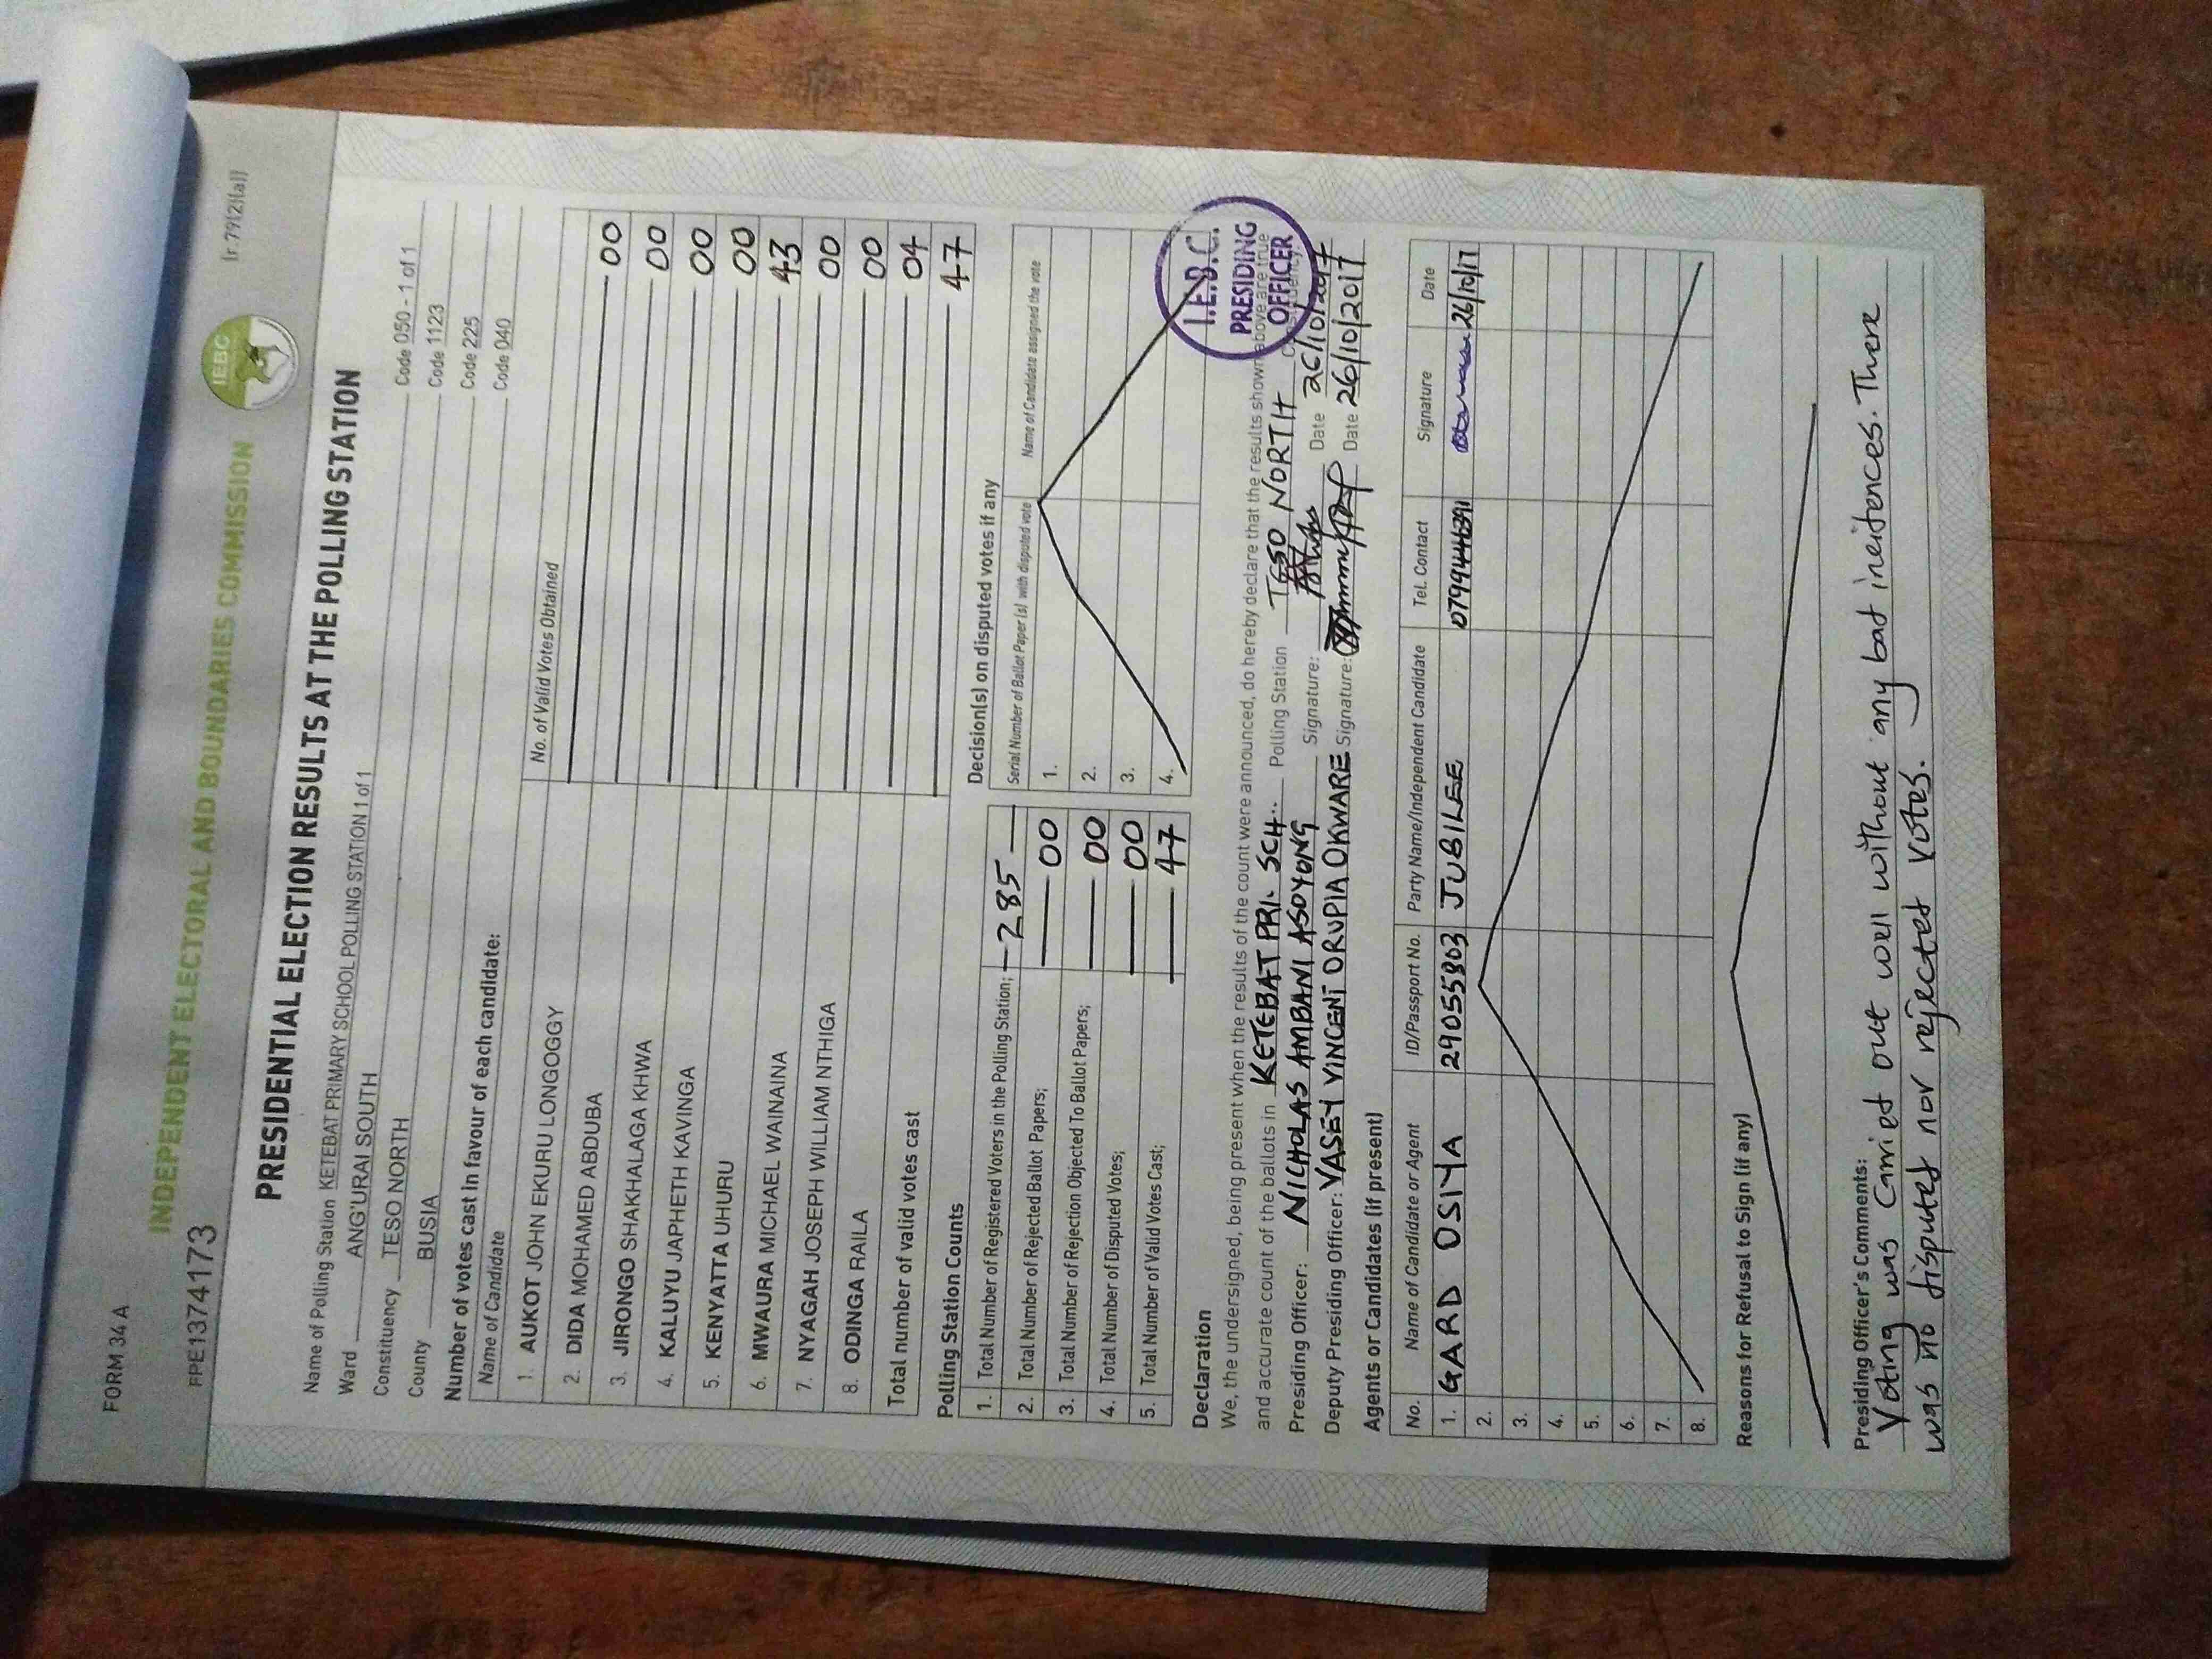 FORM 34 A
[r 79(2)(a)]
IEBC
INDEPENDENT ELECTORAL AND BOUNDARIES COMMISSION
PPE1374173
PRESIDENTIAL ELECTION RESULTS AT THE POLLING STATION
Name of Polling Station KETEBAT PRIMARY SCHOOL POLLING STATION 1 of 1 Code 050 - 1 of 1
Ward ANG'URAI SOUTH Code 1123
Constituency TESO NORTH Code 225
County BUSIA Code 040
Number of votes cast in favour of each candidate:
Name of Candidate No. of Valid Votes Obtained
1. AUKOT JOHN EKURU LONGOGGY 00
2. DIDA MOHAMED ABDUBA 00
3. JIRONGO SHAKHALAGA KHWA 00
4. KALUYU JAPHETH KAVINGA 00
5. KENYATTA UHURU 43
6. MWAURA MICHAEL WAINAINA 00
7. NYAGAH JOSEPH WILLIAM NTHIGA 00
8. ODINGA RAILA 04
Total number of valid votes cast 47
Polling Station Counts
1. Total Number of Registered Voters in the Polling Station; 285
2. Total Number of Rejected Ballot Papers; 00
3. Total Number of Rejection Objected To Ballot Papers; 00
4. Total Number of Disputed Votes; 00
5. Total Number of Valid Votes Cast; 47
Decision(s) on disputed votes if any
Serial Number of Ballot Paper(s) with disputed vote Name of Candidate assigned the vote
1.
2.
3.
4.
I.E.B.C.
PRESIDING
OFFICER
Declaration
We, the undersigned, being present when the results of the count were announced, do hereby declare that the results shown above are true
and accurate count of the ballots in KETEBAT PRI. SCH.. Polling Station TESO NORTH Constituency.
Presiding Officer: NICHOLAS AMBANI ASOYONG Signature: Date 26/10/2017
Deputy Presiding Officer: VASEY VINCENT ORUPIA OKWARE Signature: Date 26/10/2017
Agents or Candidates (if present)
No. Name of Candidate or Agent ID/Passport No. Party Name/Independent Candidate Tel. Contact Signature Date
1. GARD OSIYA 29055803 JUBILEE 0799446391 26/10/17
2.
3.
4.
5.
6.
7.
8.
Reasons for Refusal to Sign (if any)
Presiding Officer's Comments:
Voting was carried out well without any bad incitences. There
was no disputed nor rejected votes.